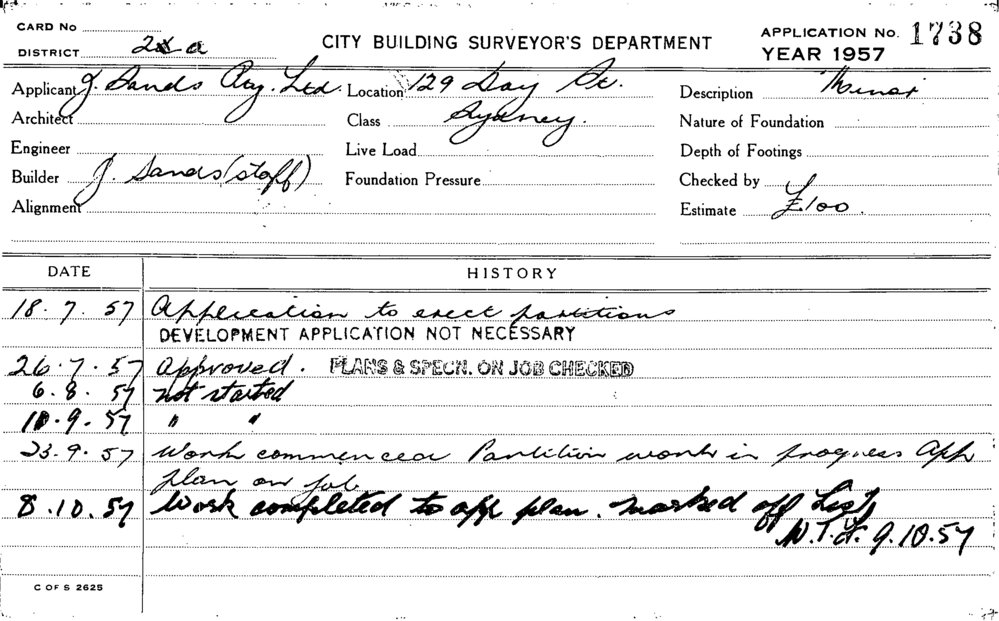 CARD No
DISTRICT 2 a
CITY BUILDING SURVEYOR'S DEPARTMENT
APPLICATION No. 1738
YEAR 1957
Applicant J. Sands Pty. Ltd. Location 129 Day St. Description Minor
Architect Class Sydney. Nature of Foundation
Engineer Live Load Depth of Footings
Builder J. Sands (staff) Foundation Pressure Checked by
Alignment Estimate £100.
DATE HISTORY
18.7.57 Application to erect partitions
DEVELOPMENT APPLICATION NOT NECESSARY
26.7.57 Approved. PLANS & SPECN. ON JOB CHECKED
6.8.57 not started
10.9.57 " "
23.9.57 Work commenced Partition work in progress App
plan on job
8.10.57 Work completed to app plan. marked off List
9.10.57
C OF S 2625